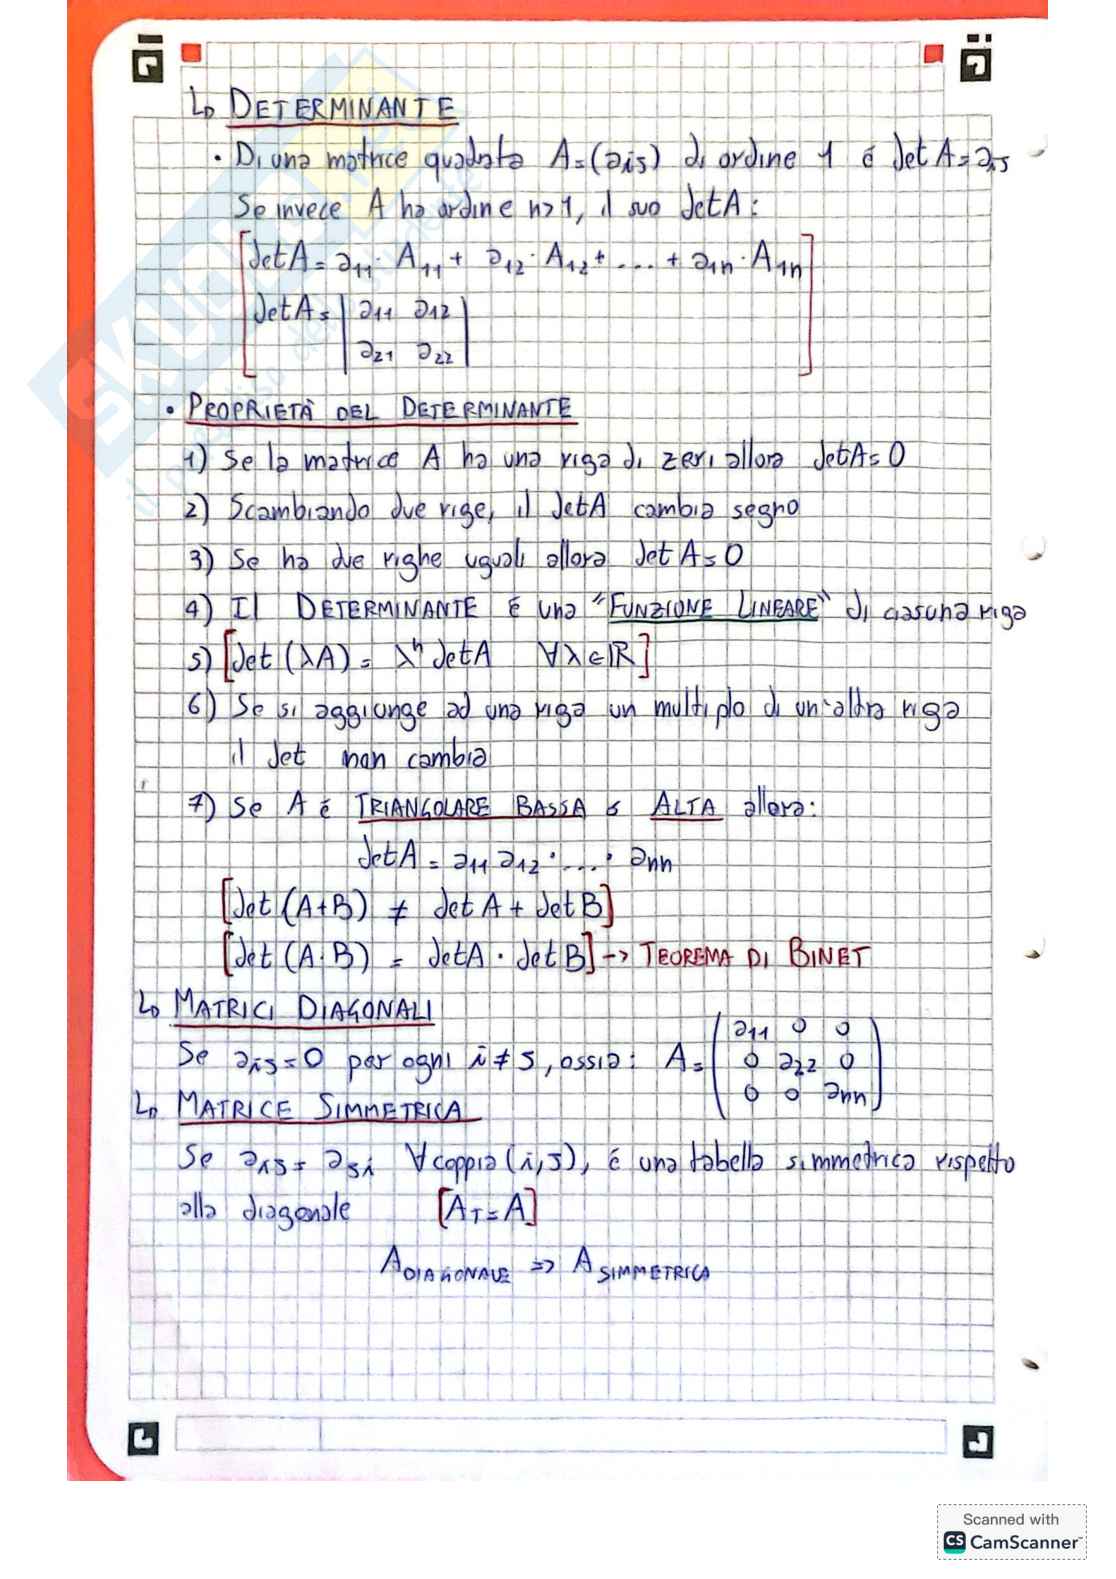 ↳ DETERMINANTE
• Di una matrice quadrata A=(aij) di ordine 1 é det A= aij
Se invece A ha ordine n>1, il suo det A:
[det A = a11 · A11 + a12 · A12 + ... + a1n · A1n
det A = | a11 a12
a21 a22 |]
• PROPRIETÀ DEL DETERMINANTE
1) Se la matrice A ha una riga di zeri allora det A = 0
2) Scambiando due rige, il det A cambia segno
3) Se ha due righe uguali allora det A = 0
4) Il DETERMINANTE é una "FUNZIONE LINEARE" di ciasuna riga
5) [det (λA) = λⁿ det A ∀λ∈ℝ]
6) Se si aggiunge ad una riga un multiplo di un'altra riga
il det non cambia
7) Se A é TRIANGOLARE BASSA o ALTA allora:
det A = a11 a12 · ... · ann
[det (A+B) ≠ det A + det B]
[det (A·B) = det A · det B] -> TEOREMA DI BINET
↳ MATRICI DIAGONALI
Se aij = 0 per ogni i ≠ j, ossia: A = ( a11 0 0
0 a22 0
0 0 ann )
↳ MATRICE SIMMETRICA
Se aij = aji ∀ coppia (i,j), é una tabella simmetrica rispetto
alla diagonale [A_T = A]
A DIAGONALE => A SIMMETRICA
Scanned with
CS CamScanner